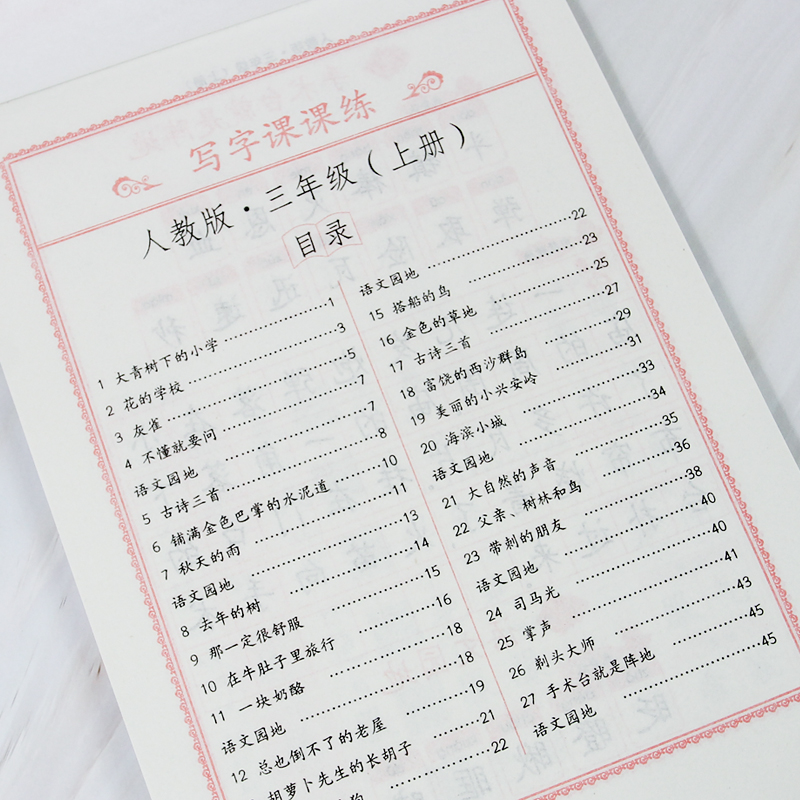 写字课课练
人教版·三年级（上册）
目录
1 大青树下的小学……1
2 花的学校……3
3 灰雀……5
4 不懂就要问……7
语文园地……7
5 古诗三首……8
6 铺满金色巴掌的水泥道……10
7 秋天的雨……11
语文园地……13
8 去年的树……14
9 那一定很舒服……15
10 在牛肚子里旅行……16
11 一块奶酪……18
语文园地……18
12 总也倒不了的老屋……19
胡萝卜先生的长胡子……21
狗……22
语文园地……22
15 搭船的鸟……23
16 金色的草地……25
17 古诗三首……27
18 富饶的西沙群岛……29
19 美丽的小兴安岭……31
20 海滨小城……33
语文园地……34
21 大自然的声音……35
22 父亲、树林和鸟……36
23 带刺的朋友……38
语文园地……40
24 司马光……40
25 掌声……41
26 剃头大师……43
27 手术台就是阵地……45
语文园地……45